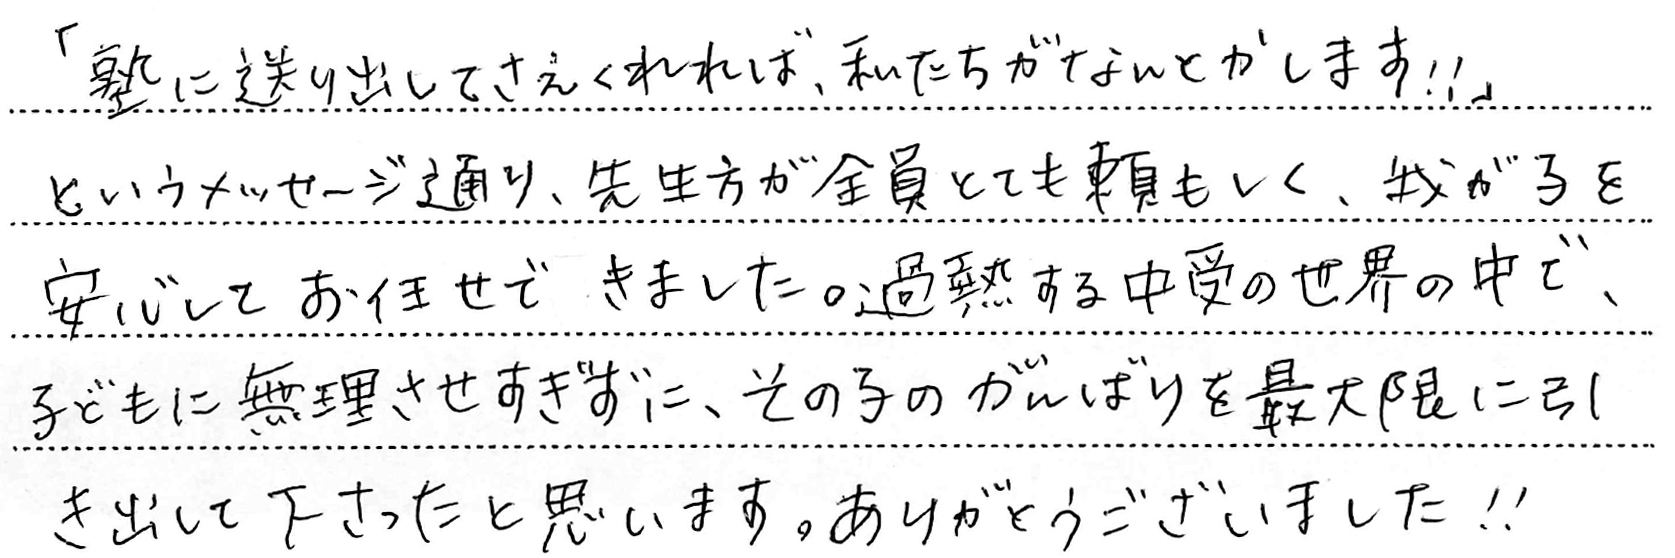 「塾に送り出してさえくれれば、私たちがなんとかします!!」
というメッセージ通り、先生方が全員とても頼もしく、我が子を
安心してお任せできました。過熱する中受の世界の中で、
子どもに無理させすぎずに、その子のがんばりを最大限に引
き出して下さったと思います。ありがとうございました!!